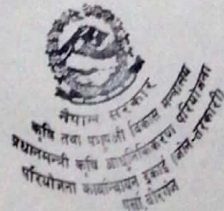 नेपाल सरकार
कृषि तथा पशुपन्छी विकास मन्त्रालय
प्रधानमन्त्री कृषि आधुनिकिकरण परियोजना
परियोजना कार्यान्वयन इकाई (जोन-तरकारी)
पर्सा वीरगंज